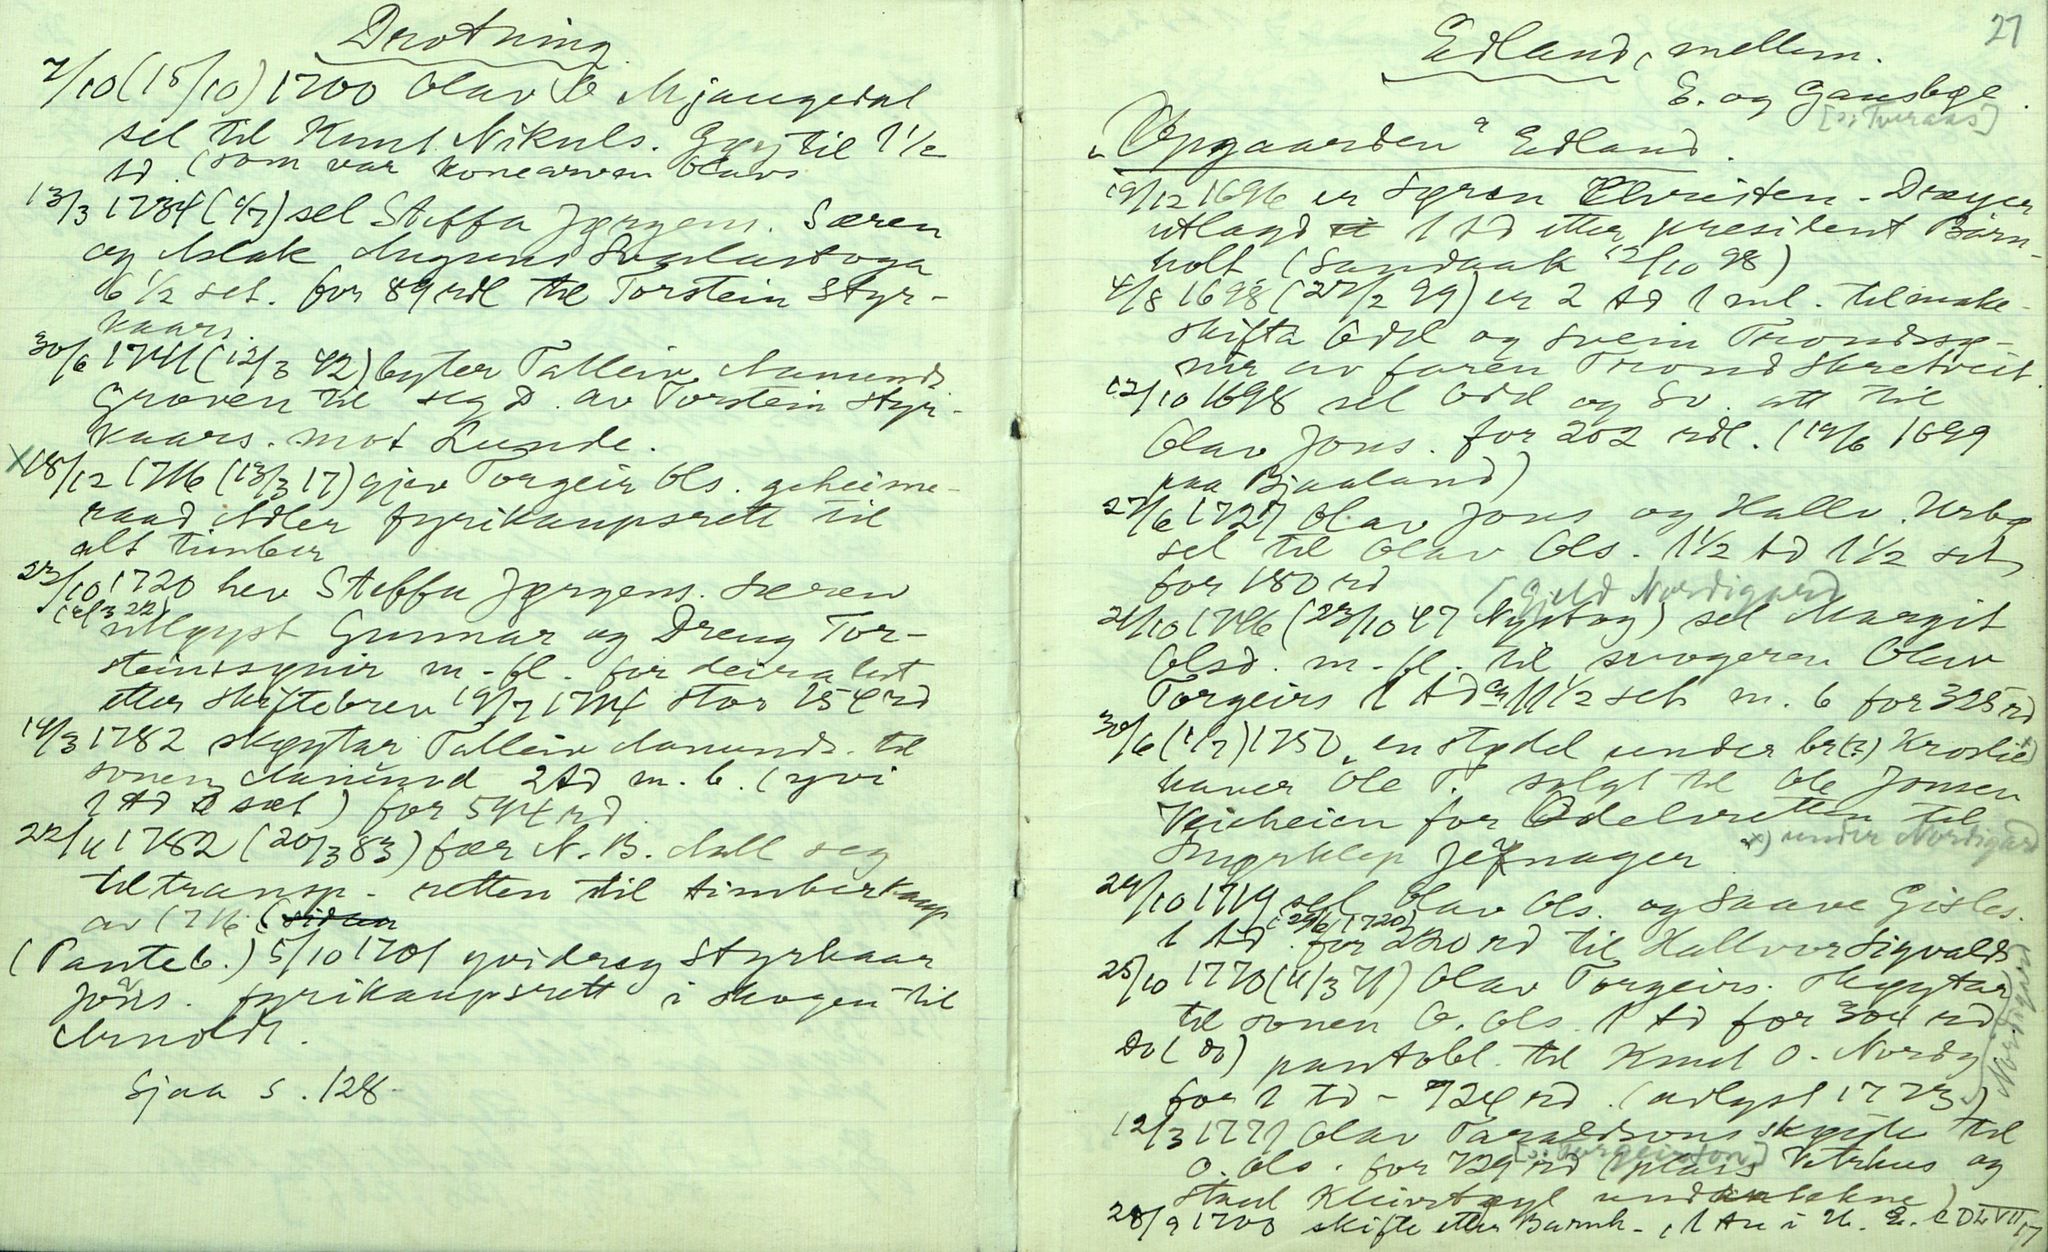 Drotning
7/10 (15/10) 1700 Olav Mjaugedal
sel til Knut Nikuls. til 1 1/2
td (som var konearven Olavs
13/3 1734 ( /7) sel Steffa Jørgens. Særen
og Aslak Svalastoga
6 1/2 set. for 89 rdl til Torstein Styr-
kaars.
30/6 1741 (12/3 42) byter Talleiv Aamunds.
Græven til seg D. av Torstein Styr-
kaars. mot Lunde.
x 18/12 1716 (13/3 17) gjev Torgeir Ols. geheime-
raad Adler fyrikaupsrett til
alt timber
23/10 1720 hev Steffa Jørgens. Særen
utløyst Gunnar og Dreng Tor-
steinssynir m. fl. for deira lut
etter skiftebrev 19/7 1714 stor 154 rd
14/3 1782 skøytar Talleiv Aamunds. til
sonen Aamund 2 td m. b. (yvi
1 td sæt) for 594 rd
22/11 1782 (20/3 83) fær N. B. Aall seg
til transp. retten til timberkaup
av 1716 (sidan
(Panteb.) 5/10 1701 yvidreg Styrkaar
Jøns. fyrikaupsrett i skogen til
Arnoldt.
Sjaa s. 128
27
Edland, mellem
E. og Gausbge.
[: Tveraas]
"Opgaarden" Edland.
19/12 1696 er Søren Christen. Drayer
utlagd 1 td etter president Børn-
holt (Sandaak 12/10 98)
4/8 1698 (27/2 99) er 2 td 1 ml. tilmake-
skifta Odd og Svein Trondssy-
nir av faren Trond Skretveit.
12/10 1698 sel Odd og Sv. att til
Olav Jons. for 202 rdl. (19/6 1699
paa Bjaaland)
27/6 1727 Olav Jons og Hallv. Urbø
sel til Olav Ols. 1 1/2 td 1 1/2 set
for 180 rd
[Gjeld Nordigard
21/10 1746 (23/10 47 Nystog) sel Margit
Olsd. m. fl. til svogeren Olav
Torgeirs 1 td og 11 1/2 set. m. b for 325 rd
30/6 (1/7) 1757 "en stødel under br(?) Kroslie x)
haver Ole T. solgt til Ole Jonsen
Veieheien for Odelsretten til
x) under Nordigard
24/10 1719 sel Olav Ols. og Saave Gisles.
(29/6 1720)
1 td. for 220 rd til Hallvor Sigvalds
25/10 1770 (11/3 71) Olav Torgeirs. skøytar
til sonen O. Ols. 1 td for 304 rd
Nordigard
do (do) pantobl. til Knut O. Nordg
for 1 td - 724 rd. (avlyst 1773)
12/3 1771 Olav Taraldsons skøyte til
[: Torgeirson]
O. Ols. for 729 rd (plass Vetrhus og
Staul Kleivstøyl undantekne)
28/9 1703 skifte etter Barnh. , 1 td i